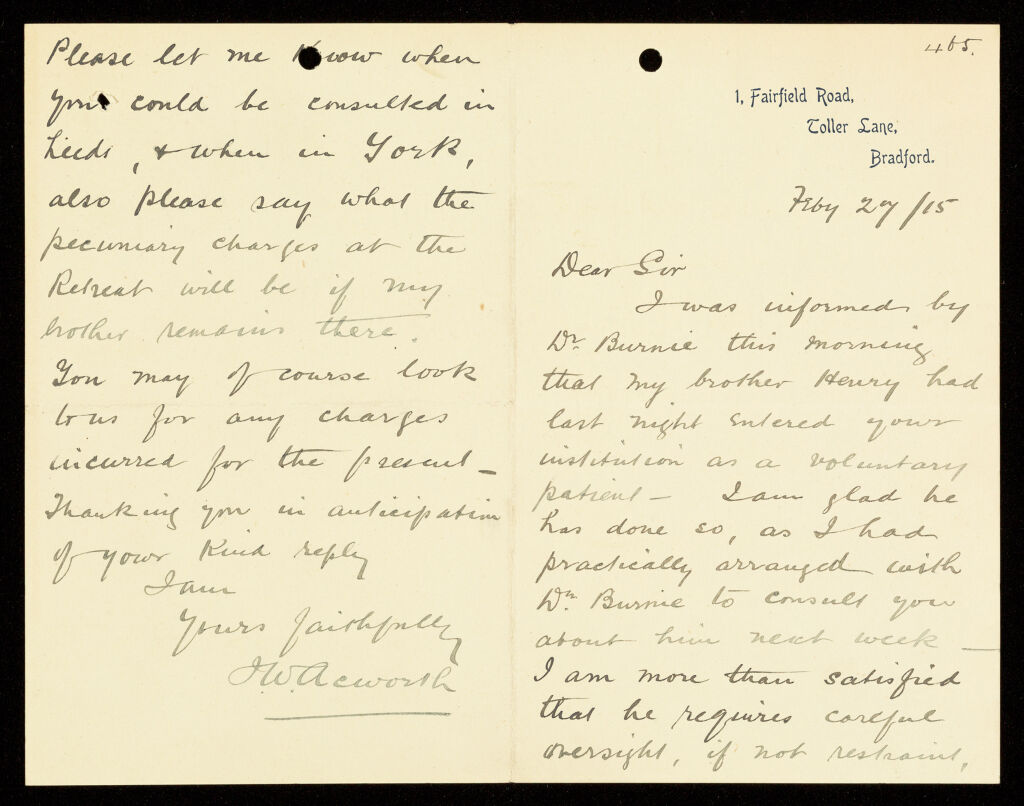 465.
1, Fairfield Road,
Toller Lane,
Bradford.
Feby 27/15
Dear Sir
I was informed by
Dr. Burnie this morning
that my brother Henry had
last night entered your
institution as a voluntary
patient — I am glad he
has done so, as I had
practically arranged with
Dr. Burnie to consult you
about him next week —
I am more than satisfied
that he requires careful
oversight, if not restraint,
Please let me know when
you could be consulted in
Leeds, & when in York,
also please say what the
pecuniary charges at the
Retreat will be if my
brother remains there.
You may of course look
to us for any charges
incurred for the present —
Thanking you in anticipation
of your kind reply
I am
Yours faithfully
J.W. Acworth